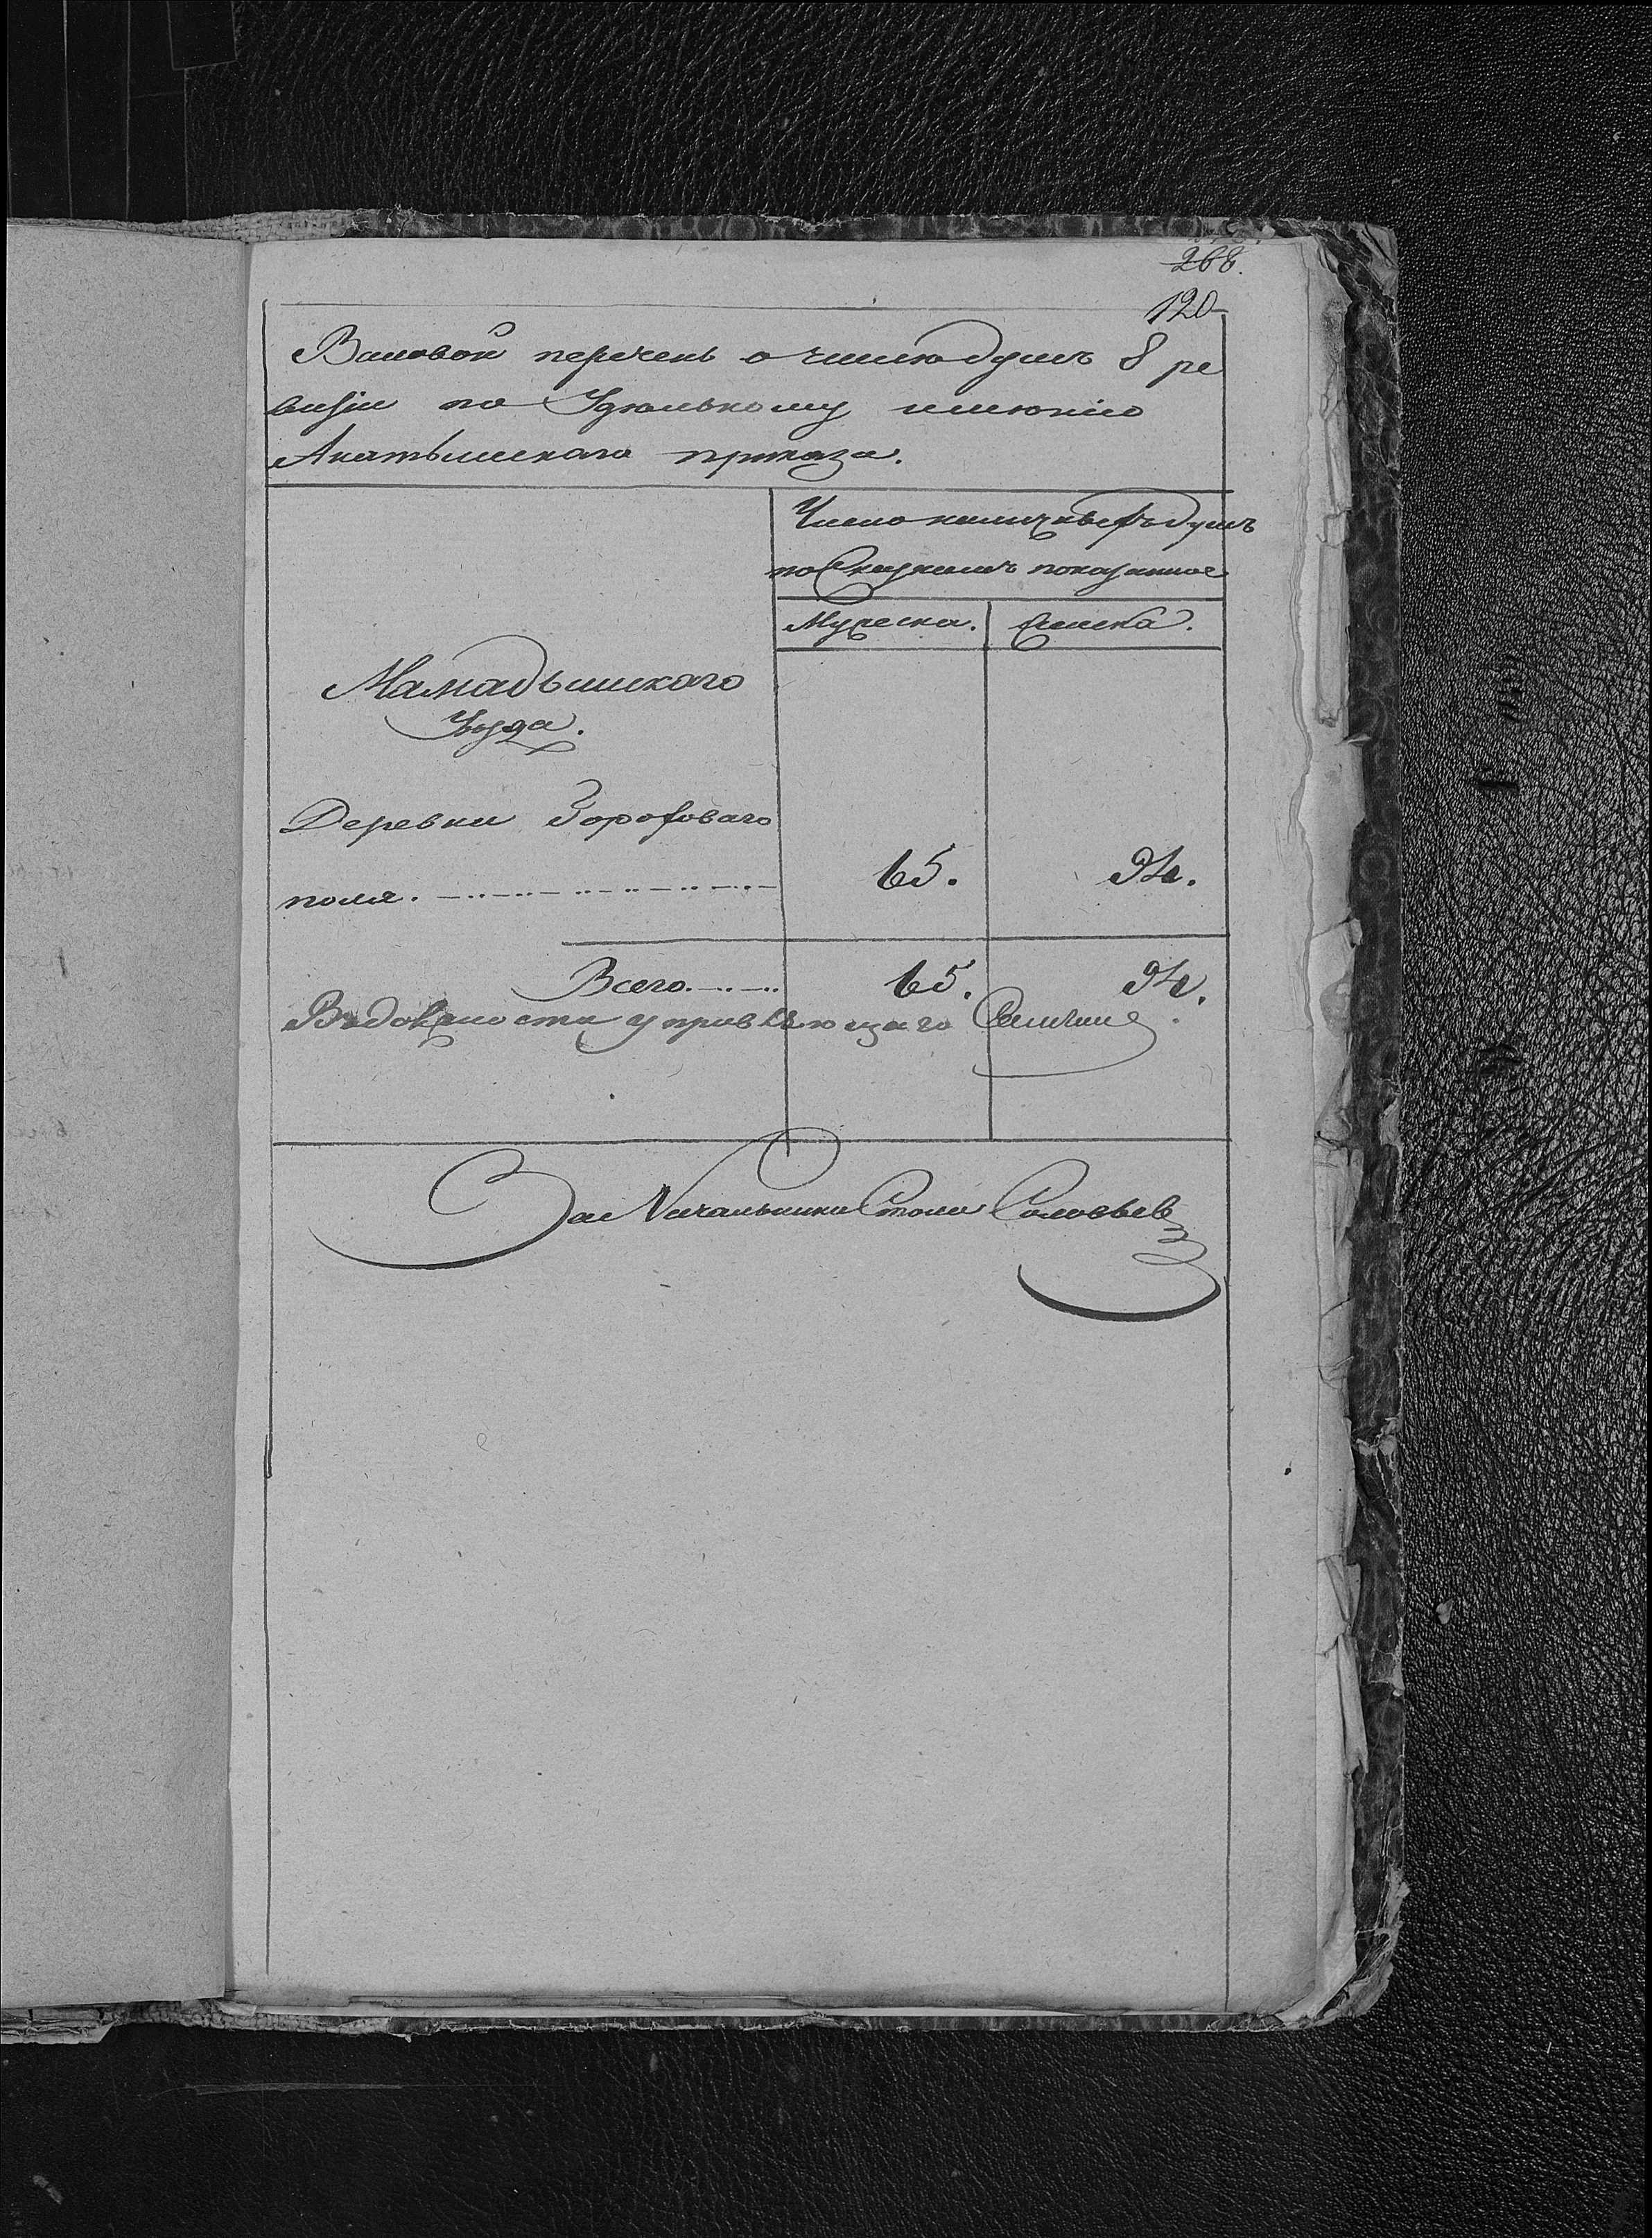 268.
120
Валовой перечень о числѣ душъ 8 ре
визіи по Удѣльному имѣнію
Анатышскаго приказа.
Число наличныхъ душъ
по Сказкамъ показанное
Мужеска. Женска.
Мамадышскаго
Уѣзда.
Деревни Гороховаго
поля. 65. 94.
Всего. 65. 94.
В должности управляющаго
За Начальника Стола Соловьев